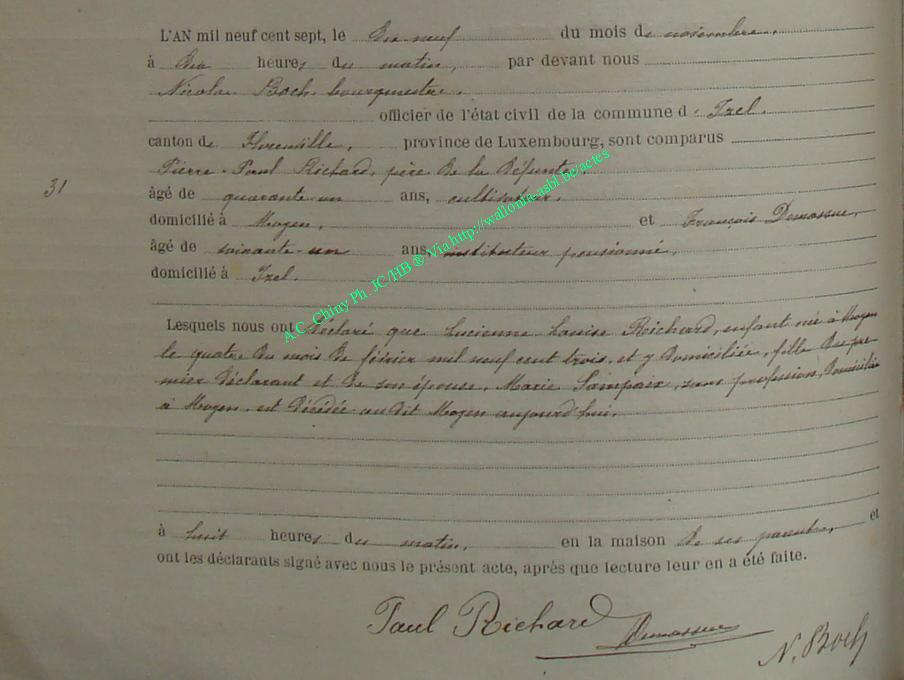 L'AN mil neuf cent sept, le dix neuf du mois de novembre,
à dix heures du matin, par devant nous
Nicolas Boch, bourgmestre,
officier de l'état civil de la commune d' Izel,
canton de Florenville, province de Luxembourg, sont comparus
Pierre-Paul Richard, père de la défunte,
31
âgé de quarante-un ans, cultivateur,
domicilié à Moyen, et François Demasseur,
âgé de soixante-un ans, instituteur pensionné,
domicilié à Izel.
Lesquels nous ont déclaré que Lucienne Louise Richard, enfant née à Moyen
le quatre du mois de février mil neuf cent trois, et y domiciliée, fille du pre-
mier déclarant et de son épouse, Marie Lampaix, sans profession, domiciliée
à Moyen, est décédée au dit Moyen aujourd'hui,
à huit heures du matin, en la maison de ses parents, et
ont les déclarants signé avec nous le présent acte, après que lecture leur en a été faite.
Paul Richard
Demasseur
N. Boch
A.C. Chiny Ph. JC/HB ® Via http://wallonia-asbl.be/actes